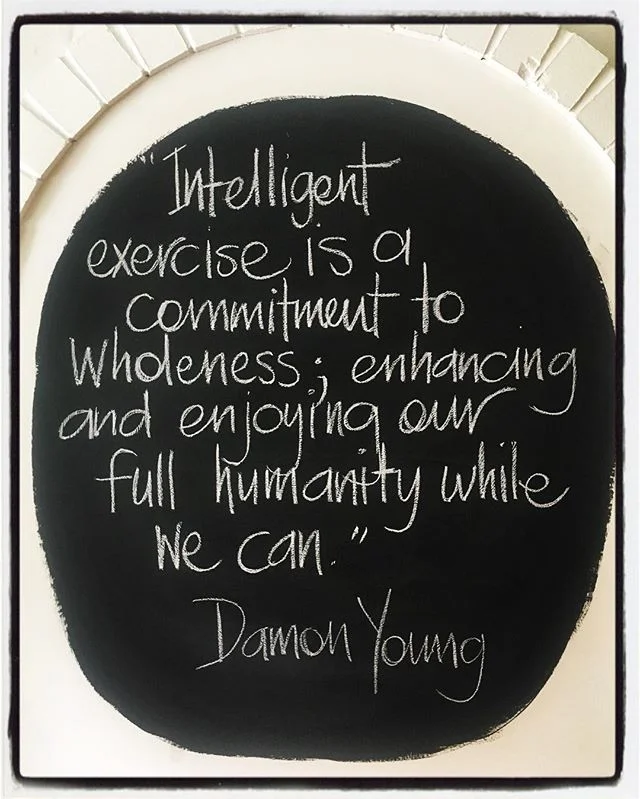 "Intelligent
exercise is a
commitment to
Wholeness; enhancing
and enjoying our
full humanity while
we can."
Damon Young